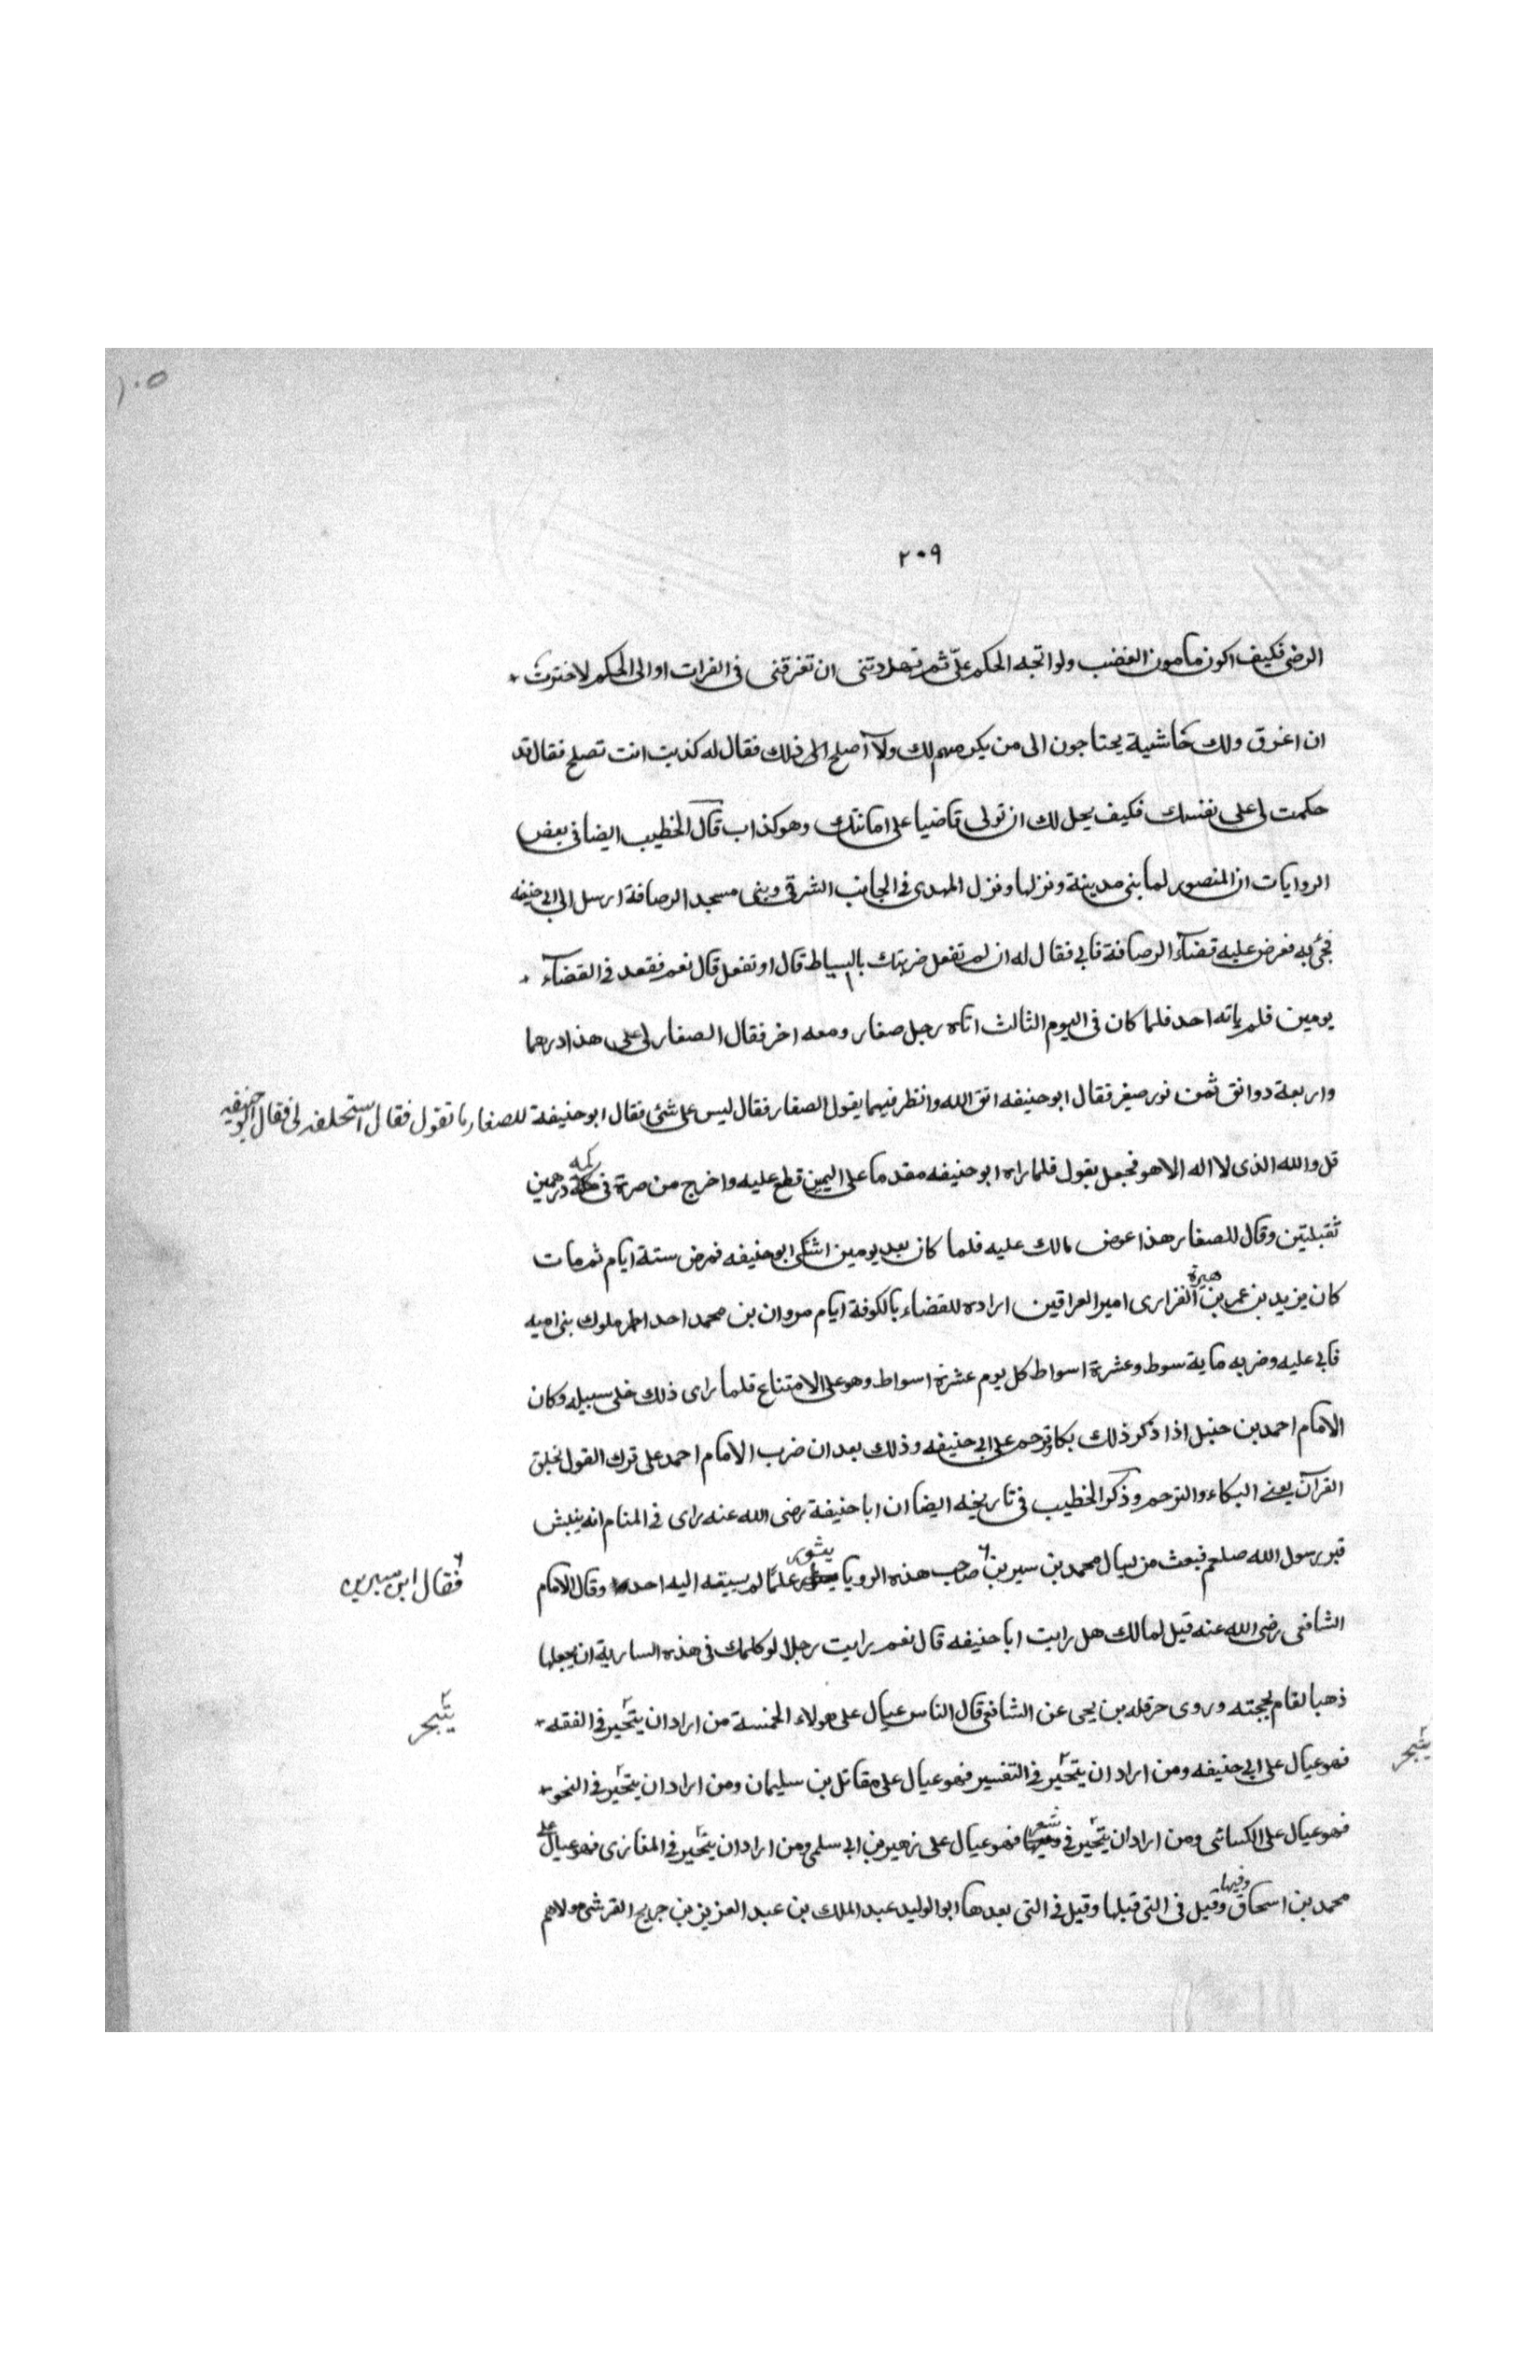 ١٠٥
٢٠٩
الرضى فكيف اكون مامون الغضب ولو اتجه الحكم علىّ ثم تهددتنى ان تغرقنى فى الفرات او الى الحكم لاخترت
ان اغرق ولك حاشية يحتاجون الى من يكرمهم لك ولا اصلح الى ذلك فقال له كذبت انت تصلح فقال قد
حكمت لى على نفسك فكيف يحل لك ان تولى قاضيا على امانتك وهو كذاب قال الخطيب ايضا فى بعض
الروايات ان المنصور لما بنى مدينة ونزلها ونزل المهدى فى الجانب الشرقى وبنى مسجد الرصافة ارسل الى ابى حنيفه
فجئ به فعرض عليه قضاء الرصافة فابى فقال له ان لم تفعل ضربتك بالسياط قال او تفعل قال نعم فقعد فى القضاء
يومين فلم ياته احد فلما كان فى اليوم الثالث اتاه رجل صفار ومعه اخر فقال الصفار لى على هذا درهما
واربعة دوانق ثمن نور صغير فقال ابو حنيفه اتق الله وانظر فيما يقول الصفار فقال ليس على شئ فقال ابو حنيفة للصفار ما تقول فقال استحلفه لى فقال ابو حنيفه
قل والله الذى لا اله الا هو فجعل يقول فلما راه ابو حنيفه مقدما على اليمين قطع عليه واخرج من صرة فى كمه درهمين
ثقيلتين وقال للصفار هذا عوض مالك عليه فلما كان بعد يومين اشتكى ابو حنيفه فمرض ستة ايام ثم مات
كان يزيد بن عمر بن هبيرة الفزارى امير العراقين اراده للقضاء بالكوفة ايام مروان بن محمد احد اخر ملوك بنى اميه
فابى عليه وضربه ماية سوط وعشرة اسواط كل يوم عشرة اسواط وهو على الامتناع فلما راى ذلك خلى سبيله وكان
الامام احمد بن حنبل اذا ذكر ذلك بكا وترحم على ابى حنيفه وذلك بعد ان ضرب الامام احمد على ترك القول بخلق
القرآن يعنى البكاء والترحم وذكر الخطيب فى تاريخه ايضا ان ابا حنيفة رضى الله عنه راى فى المنام انه ينبش
قبر رسول الله صلعم فبعث من يسال محمد بن سيرين صاحب هذه الرويا يثور علما لم يسبقه اليه احد وقال الامام
فقال ابن سيرين
الشافعى رضى الله عنه قيل لمالك هل رايت ابا حنيفه قال نعم رايت رجلا لو كلمك فى هذه السارية ان يجعلها
ذهبا لقام بحجته وروى حرمله بن يحيى عن الشافعى قال الناس عيال على هولاء الخمسة من اراد ان يتحير فى الفقه
يتبحر
فهو عيال على ابى حنيفه ومن اراد ان يتحير فى التفسير فهو عيال على مقاتل بن سليمان ومن اراد ان يتحير فى النحو
يتبحر
فهو عيال على الكسائى ومن اراد ان يتحير فى شعر فهو عيال على زهير بن ابى سلمى ومن اراد ان يتحير فى المغازى فهو عيال على
محمد بن اسحاق وفيها وقيل فى التى قبلها وقيل فى التى بعدها ابو الوليد عبد الملك بن عبد العزيز بن جريج القرشى مولاهم